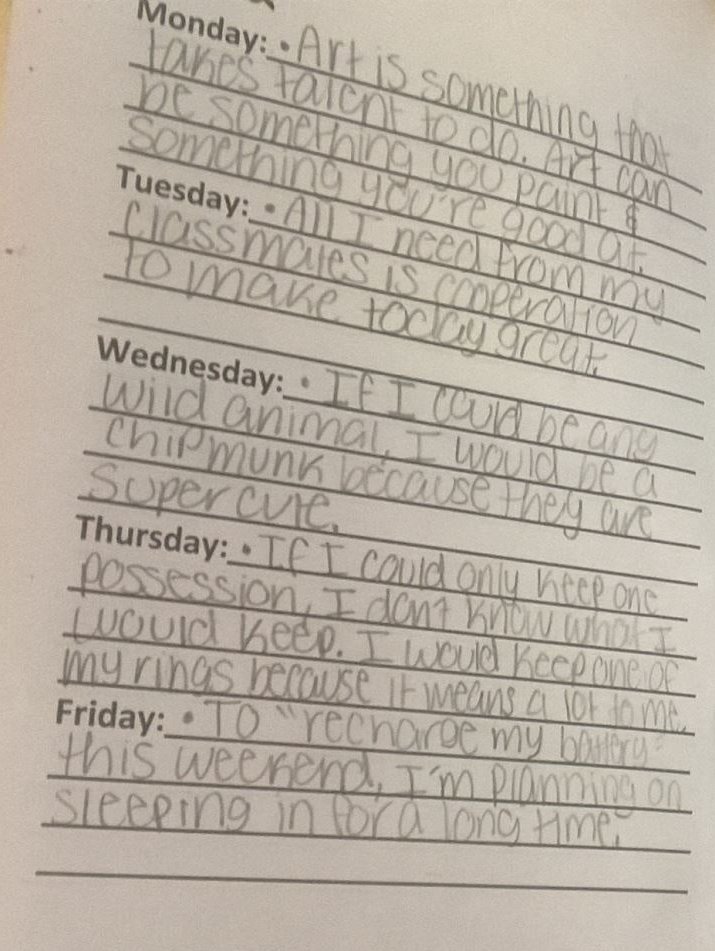 Monday: • Art is something that
takes talent to do. Art can
be something you paint &
something you're good at.
Tuesday: • All I need from my
classmates is cooperation
to make today great.
Wednesday: • If I could be any
wild animal, I would be a
chipmunk because they are
super cute.
Thursday: • If I could only keep one
possession, I don't know what I
would keep. I would keep one of
my rings because it means a lot to me.
Friday: • To "recharge my battery"
this weekend, I'm planning on
sleeping in for a long time.